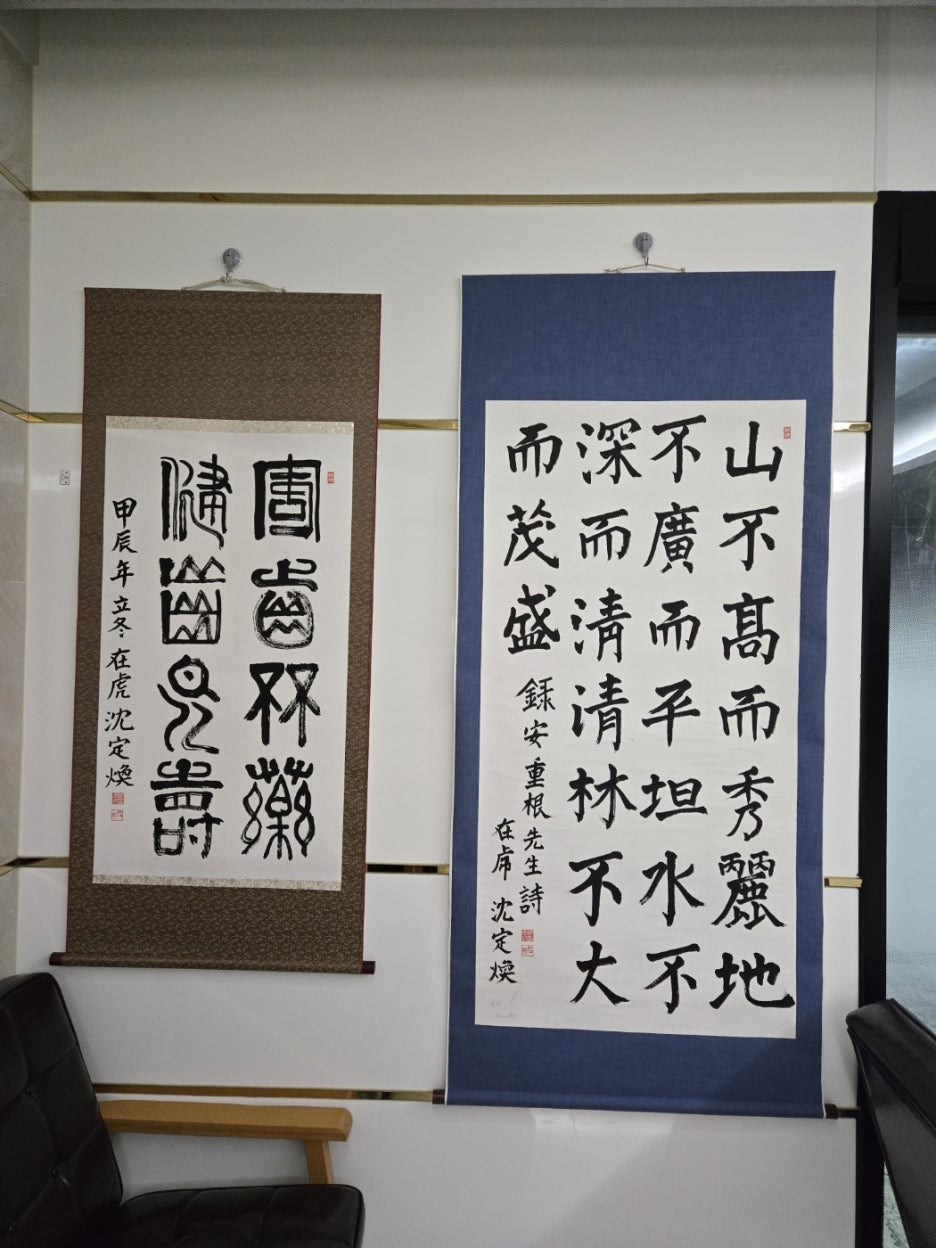 山不髙而秀麗地
不廣而平坦水不
深而清清林不大
而茂盛
錄安重根先生詩
在虎 沈定煥
齒 藥
健齒 壽
甲辰年 立冬 在虎 沈定煥